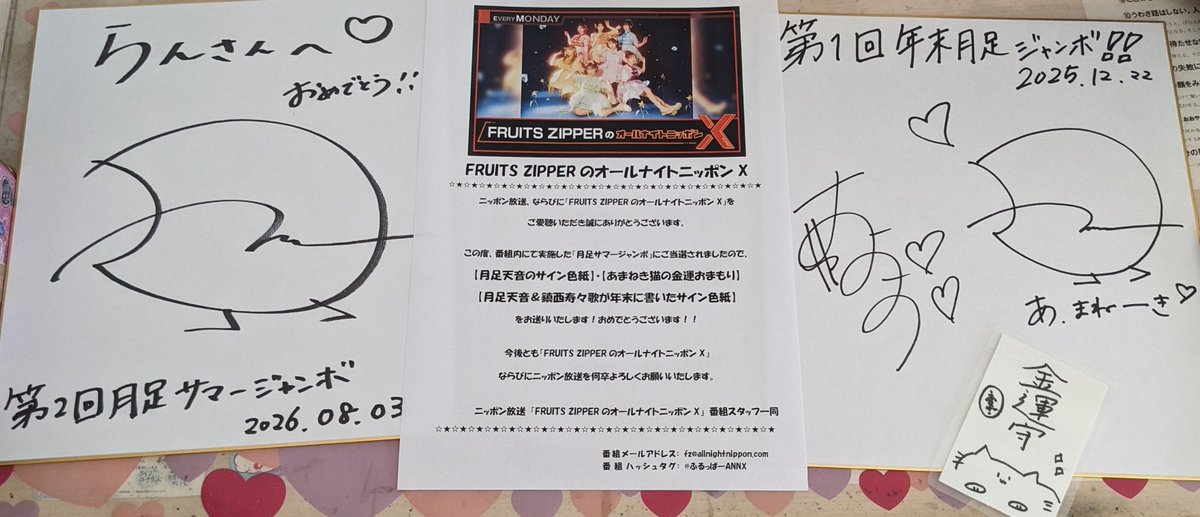 らんさんへ♡
おめでとう!!
第2回月足サマージャンボ
2026.08.03
EVERY MONDAY
FRUITS ZIPPERのオールナイトニッポンX
FRUITS ZIPPER のオールナイトニッポン X
☆★☆★☆★☆★☆★☆★☆★☆★☆★☆★☆★☆★☆★☆★☆★☆★☆★☆★☆★☆★☆
ニッポン放送、ならびに「FRUITS ZIPPER のオールナイトニッポン X」を
ご愛聴いただき誠にありがとうございます。
この度、番組内にて実施した「月足サマージャンボ」にご当選されましたので、
【月足天音のサイン色紙】・【あまねき猫の金運おまもり】
【月足天音＆鎮西寿々歌が年末に書いたサイン色紙】
をお送りいたします！おめでとうございます！！
今後とも「FRUITS ZIPPER のオールナイトニッポン X」
ならびにニッポン放送を何卒よろしくお願いいたします。
ニッポン放送 「FRUITS ZIPPER のオールナイトニッポン X」 番組スタッフ一同
☆★☆★☆★☆★☆★☆★☆★☆★☆★☆★☆★☆★☆★☆★☆★☆★☆★☆★☆★☆★☆
番組メールアドレス: fz@allnightnippon.com
番組ハッシュタグ: #ふるっぱーANNX
第1回年末月足ジャンボ
2025.12.22
あ、まねーき♡
金運守